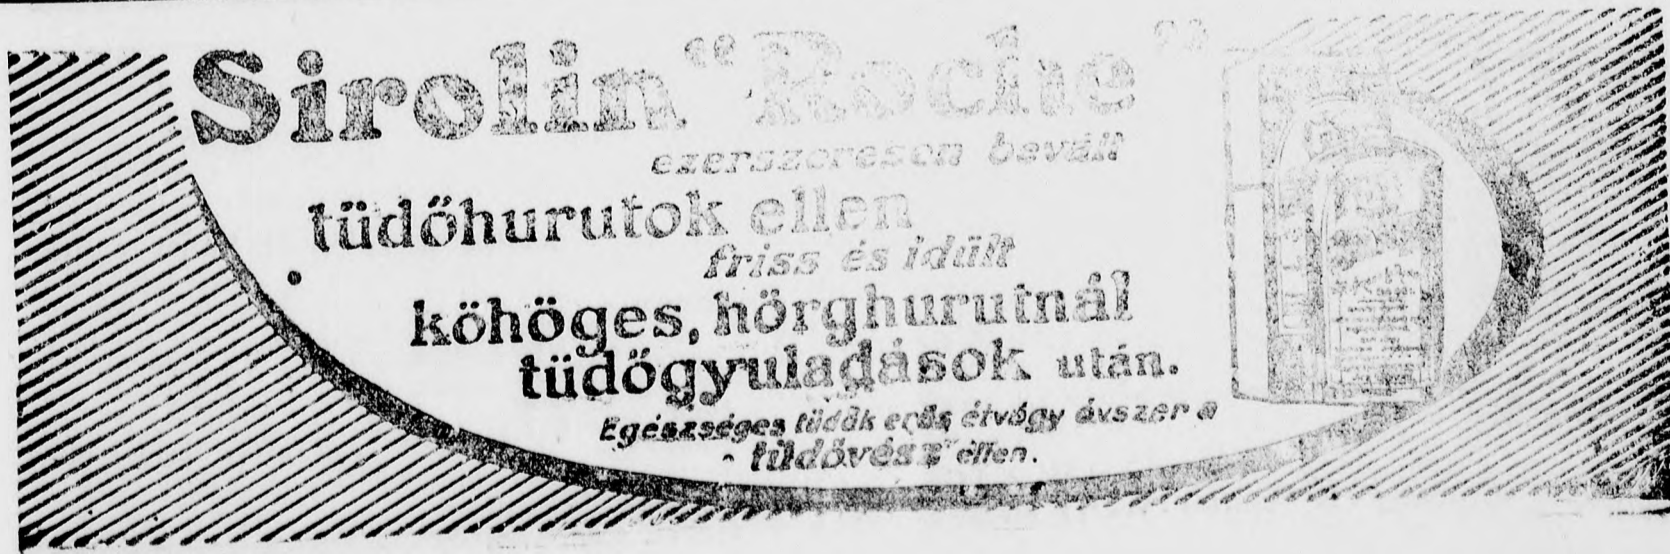 Sirolin "Roche"
ezerszeresen bevált
tüdőhurutok ellen
friss és idült
köhöges, hörghurutnál
tüdőgyuladások után.
Egészséges tüdők erős étvágy óvszer a
tüdővész ellen.